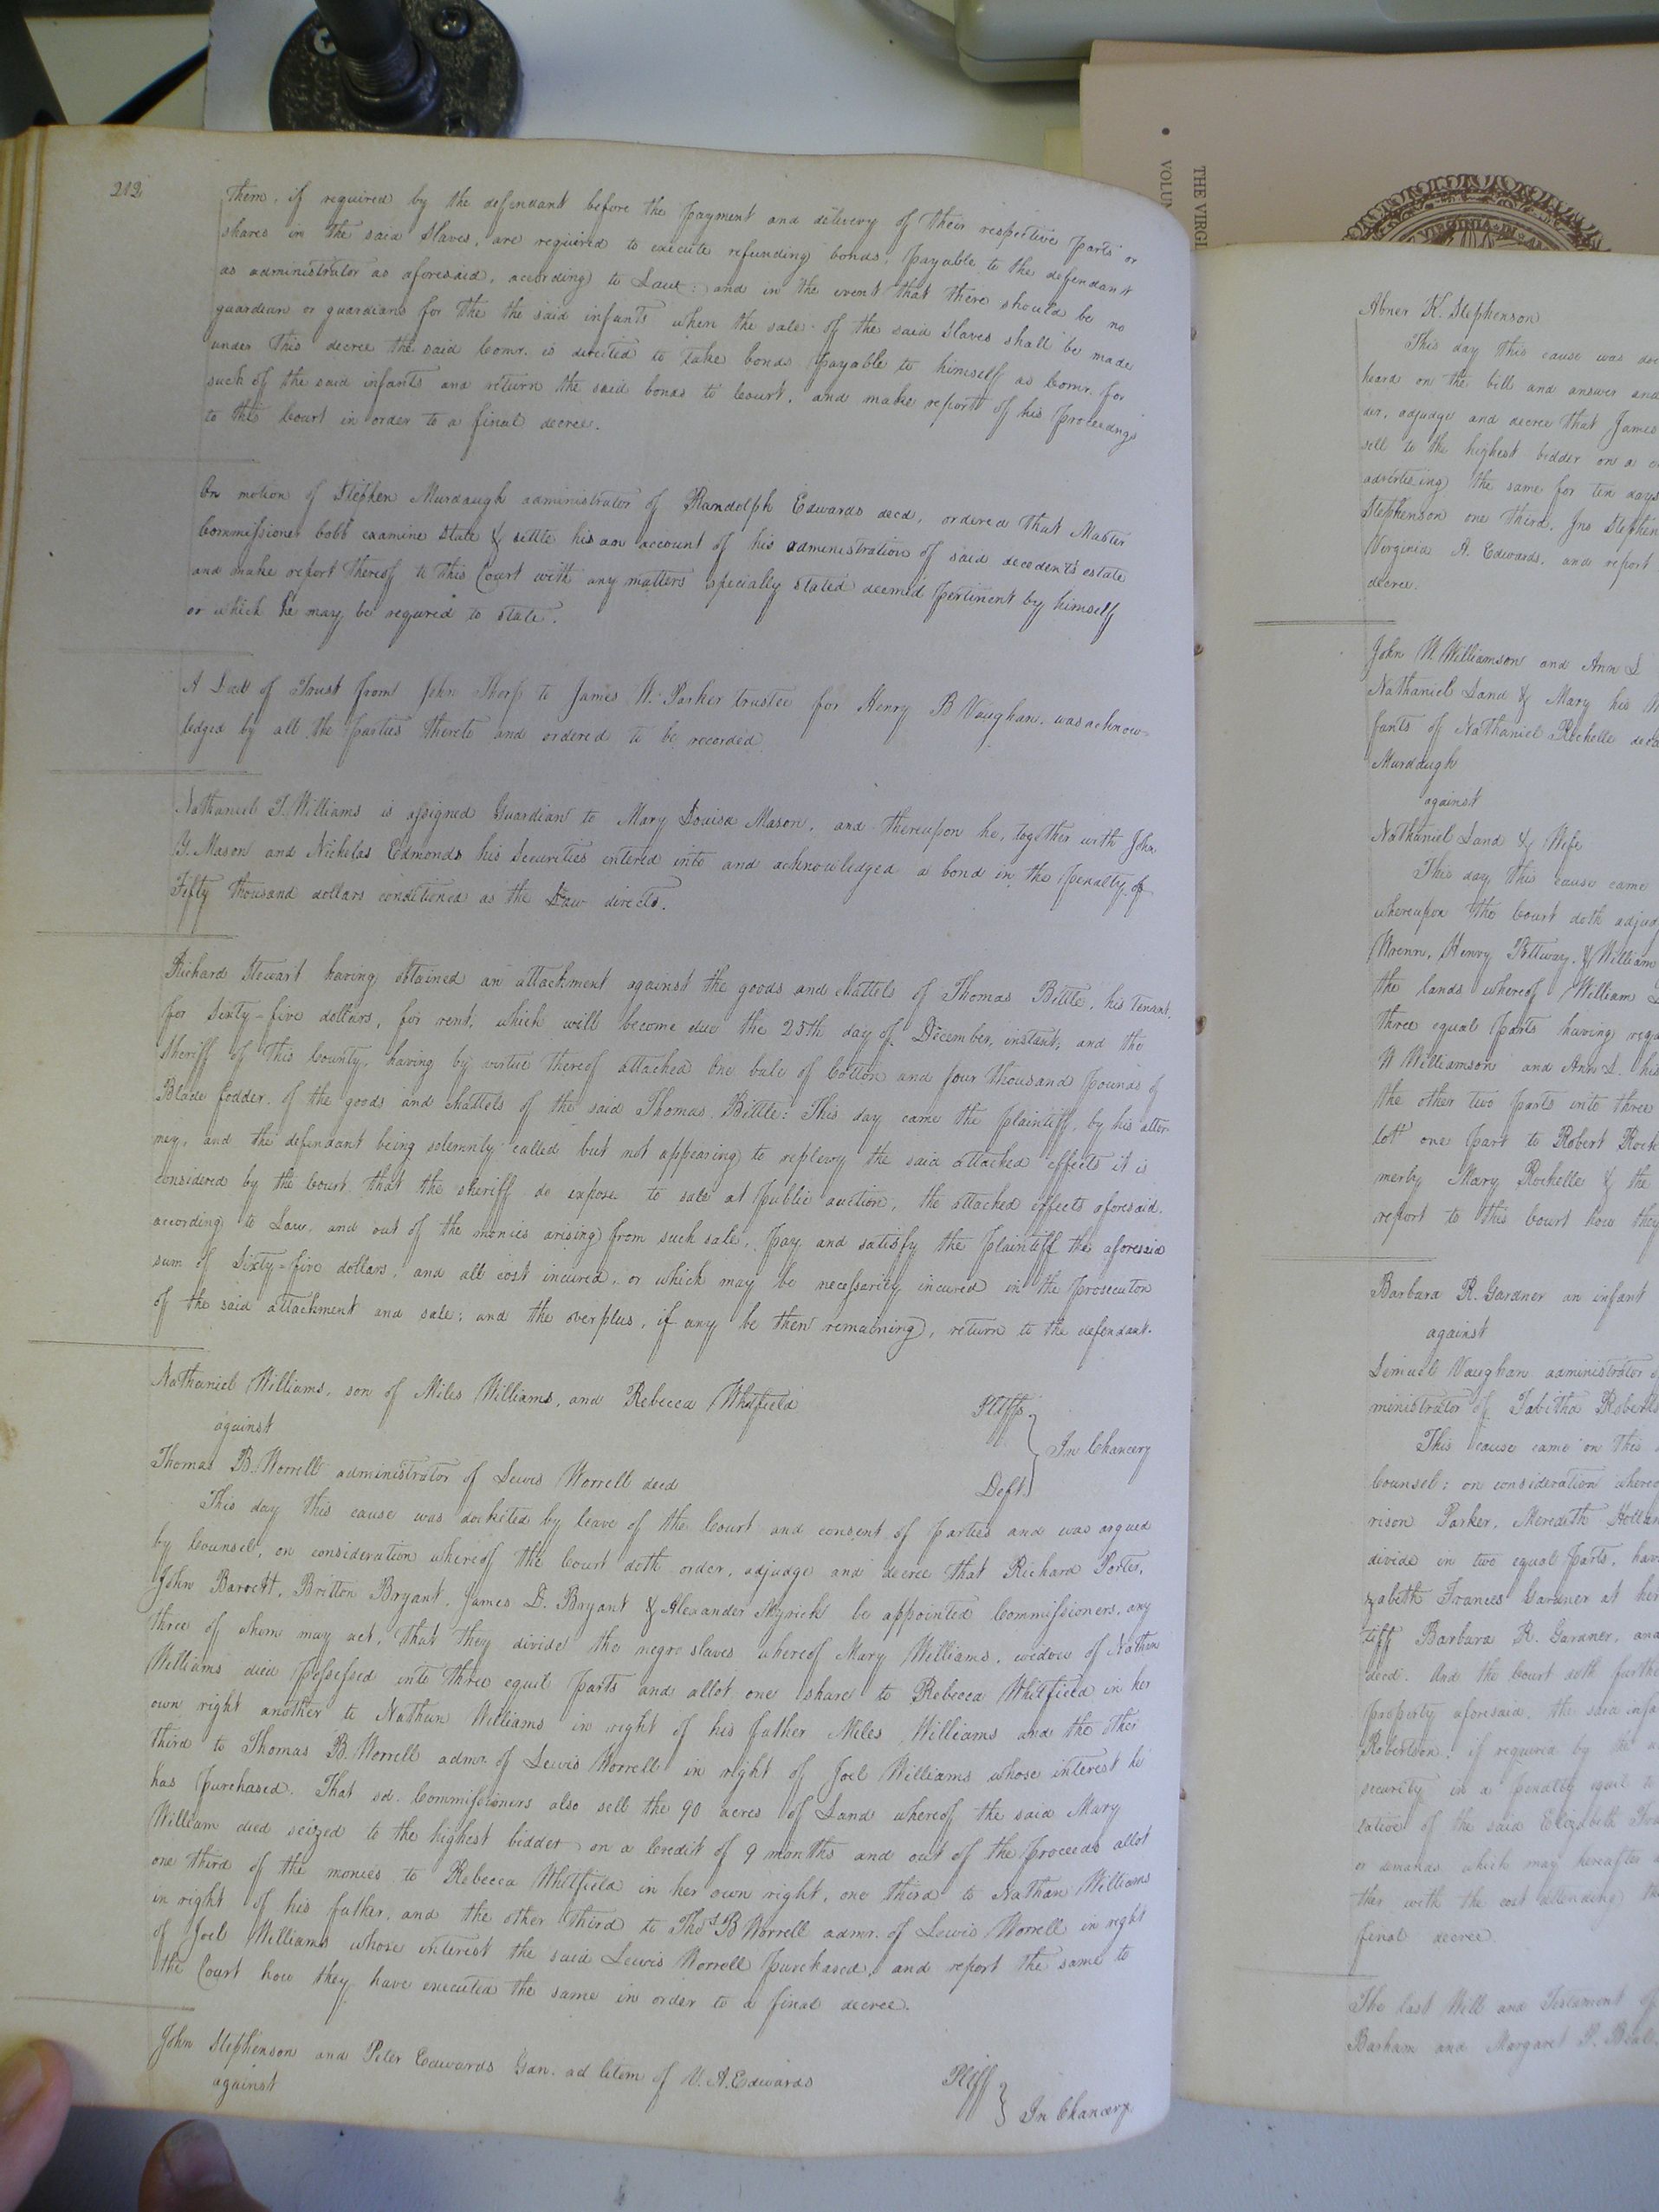 212
them, if required by the defendant before the payment and delivery of their respective parts or
shares in the said slaves, are required to execute refunding bonds, payable to the defendant
as administrator as aforesaid, according to Law: and in the event that there should be no
guardian or guardians for the the said infants when the sale of the said slaves shall be made
under this decree the said Comr. is directed to take bonds payable to himself as Comr. for
such of the said infants and return the said bonds to Court, and make report of his proceedings
to the Court in order to a final decree.
On motion of Stephen Murdaugh administrator of Randolph Edwards decd, ordered that Master
Commissioner Cobb examine state & settle his an account of his administration of said decedents estate
and make report thereof to this Court with any matters specially stated deemed pertinent by himself
or which he may be required to state.
A Deed of Trust from John Thorp to James W. Parker trustee for Henry B Vaughan, was acknow-
ledged by all the parties thereto and ordered to be recorded.
Nathaniel T. Williams is assigned Guardian to Mary Louisa Mason, and thereupon he, together with John
Y. Mason and Nicholas Edmonds his Securities entered into and acknowledged a bond in the penalty of
Fifty thousand dollars conditioned as the Law directs.
Richard Stewart having obtained an attachment against the goods and chattels of Thomas Bittle, his tenant,
for Sixty-five dollars, for rent, which will become due the 25th day of December, instant, and the
Sheriff of this County, having by virtue thereof attached One bale of Cotton and four thousand pounds of
Blade fodder, of the goods and chattels of the said Thomas Bittle: This day came the plaintiff, by his attor-
ney, and the defendant being solemnly called but not appearing to replevy the said attached effects it is
considered by the Court that the sheriff do expose to sale at public auction, the attached effects aforesaid,
according to Law, and out of the monies arising from such sale, pay and satisfy the plaintiff the aforesaid
sum of Sixty-five dollars, and all cost incured, or which may be necessarily incured in the prosecuton
of the said attachment and sale; and the overplus, if any be then remaining, return to the defendant.
Nathaniel Williams, son of Miles Williams, and Rebecca Whitfield Pltffs
against In Chancery
Thomas B. Worrell administrator of Lewis Worrell decd Deft.
This day this cause was docketed by leave of the Court and consent of parties and was argued
by Counsel, on consideration whereof the Court doth order, adjudge and decree that Richard Porter,
John Barrett, Britton Bryant, James D. Bryant & Alexander Myrick be appointed Commissioners, any
three of whom may act, that they divide the negro slaves whereof Mary Williams, widow of Nathan
Williams died possessed into three equil parts and allot one share to Rebecca Whitfield in her
own right another to Nathan Williams in right of his father Miles Williams and the other
third to Thomas B. Worrell admr. of Lewis Worrell in right of Joel Williams whose interest he
has purchased. That sd. Commissioners also sell the 90 acres of Land whereof the said Mary
William died seized to the highest bidder on a Credit of 9 months and out of the proceeds allot
one third of the monies to Rebecca Whitfield in her own right, one third to Nathan Williams
in right of his father, and the other third to Thos. B Worrell admr. of Lewis Worrell in right
of Joel Williams whose interest the said Lewis Worrell purchased, and report the same to
the Court how they have executed the same in order to a final decree.
John Stephenson and Peter Edwards Gan. ad litem of V. A. Edwards Pltff
against In Chancery
THE VIRGI
VOLUN
VIRGINIA IN
Abner K. Stephenson
This day this cause was doc
heard on the bill and answer and
der, adjudge and decree that James
sell to the highest bidder on a
advertising the same for ten days
Stephenson one third, Jno Stephen
Virginia A. Edwards, and report
decree.
John W Williamson and Ann L
Nathaniel Land & Mary his
fants of Nathaniel Rochelle decd
Murdaugh
against
Nathaniel Land & Wife
This day this cause came
whereupon the Court doth adjud
Wrenn, Henry Pettway, & William
the lands whereof William
three equal parts having rega
W Williamson and Ann L. his
the other two parts into three
lott one part to Robert Roch
merly Mary Rochelle & the
report to this Court how they
Barbara R. Gardner an infant
against
Lemuel Vaughan administrator o
ministrator of Tabitha Roberts
This cause came on this
Counsel; on consideration whereo
rison Parker, Meredith Hollan
divide in two equal parts, have
zabeth Frances Gardner at her
tiff Barbara R. Gardner, and
decd. And the Court doth furthe
property aforesaid, the said infa
Robertson, if required by the a
security in a penalty equil to
tative of the said Elizabeth Fra
or demands which may hereafter
ther with the cost attending the
final decree.
The last Will and Testament of
Barham and Margaret P.